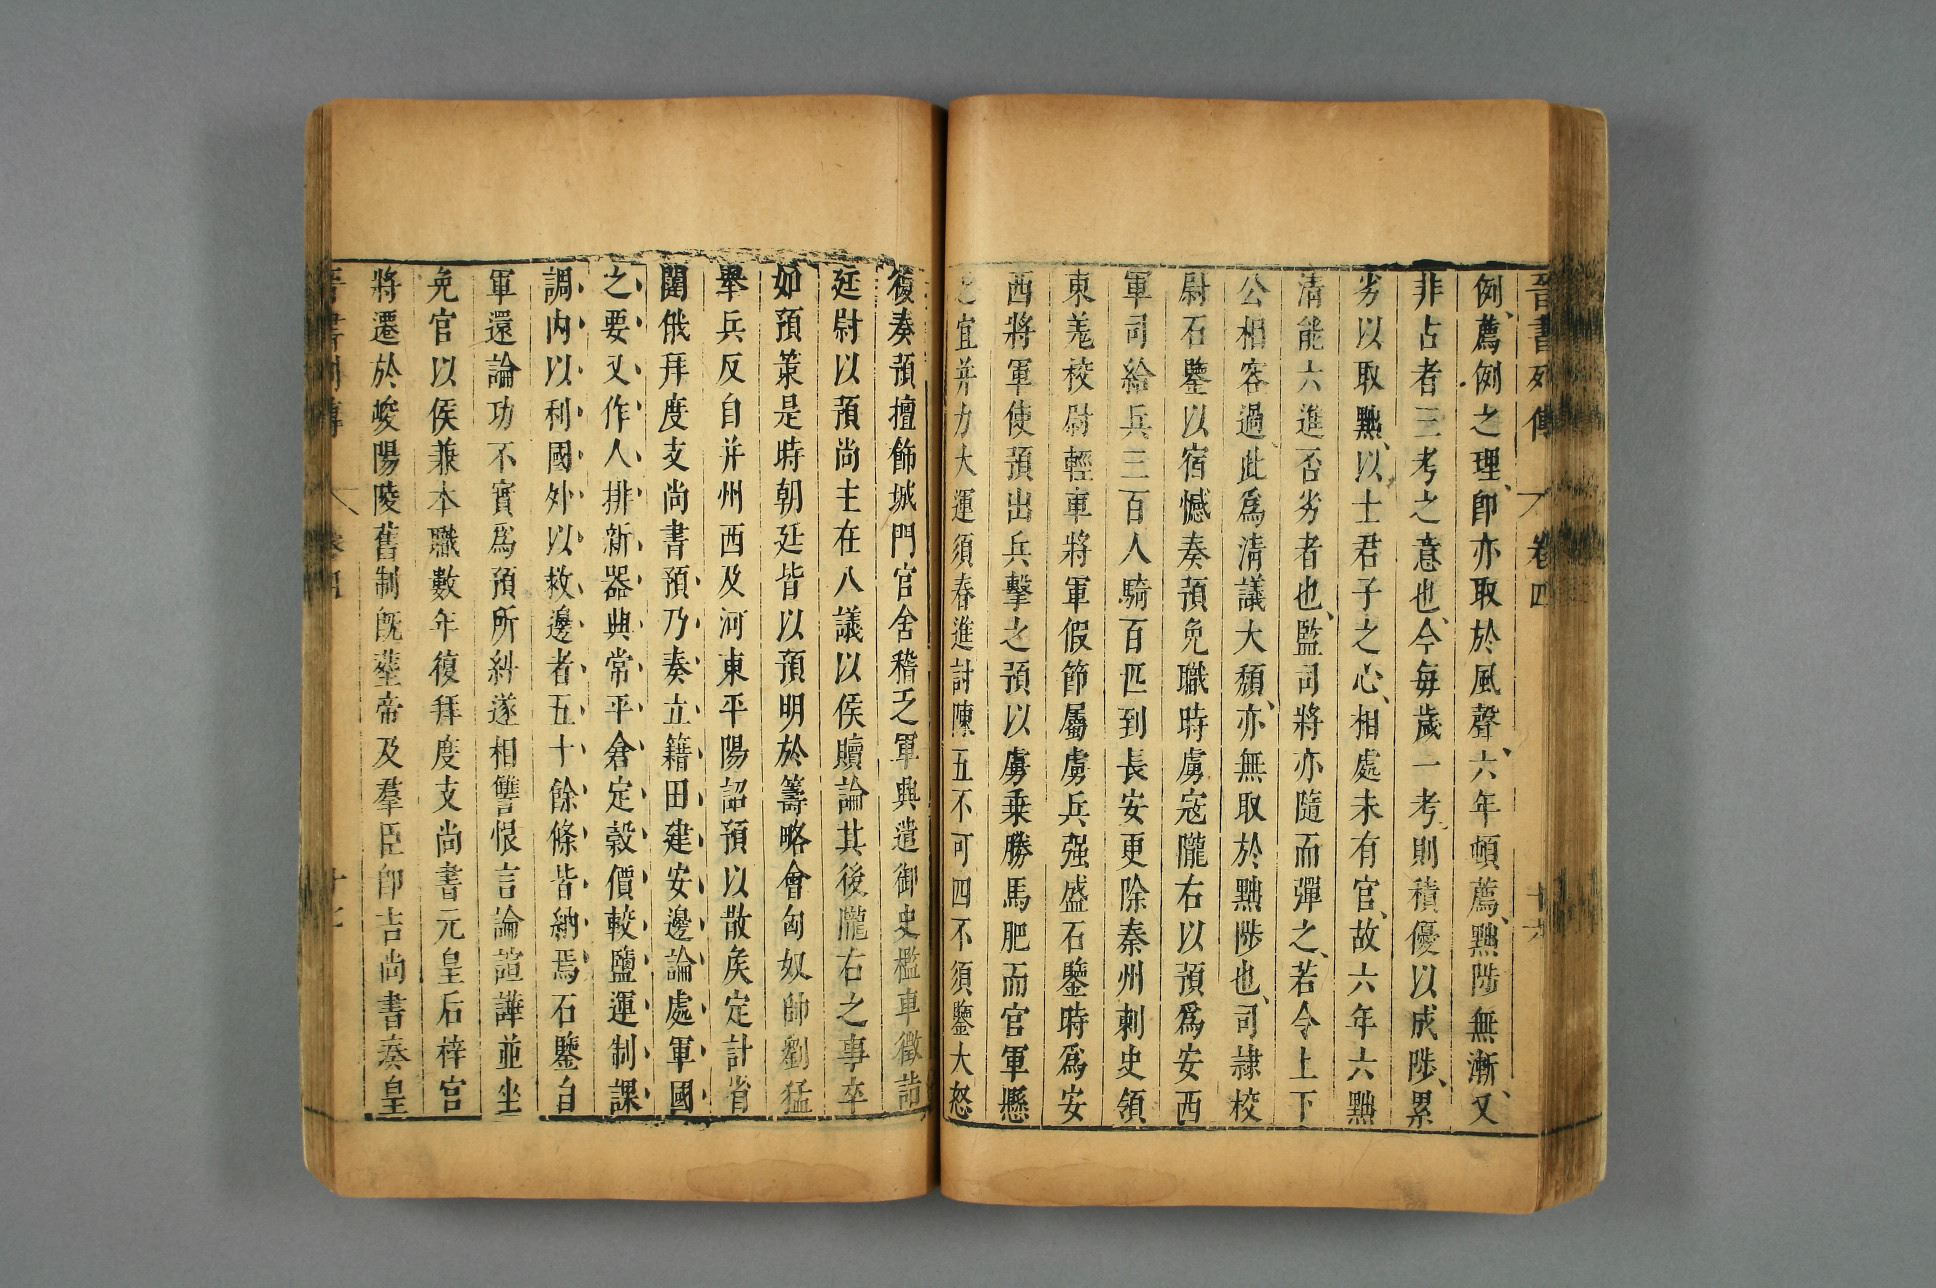 晉書列傳 卷四 十六
例、薦例之理、卽亦取於風聲、六年頓薦、黜陟無漸、又
非古者三考之意也、今每歲一考則積優以成陟、累
劣以取黜、以士君子之心、相處未有官、故六年六黜
清能六進否劣者也、監司將亦隨而彈之、若令上下
公相容過、此爲清議大頹、亦無取於黜陟也、司隷校
尉石鑒以宿憾奏預免職時虜寇隴右以預爲安西
軍司給兵三百人騎百匹到長安更除秦州刺史領
東羌校尉輕車將軍假節屬虜兵强盛石鑒時爲安
西將軍使預出兵擊之預以虜乗勝馬肥而官軍懸
之宜并力大運須春進討陳五不可四不須鑒大怒
復奏預擅飾城門官舍稽乏軍興遣御史檻車徵詣
廷尉以預尚主在八議以侯贖論其後隴右之事卒
如預策是時朝廷皆以預明於籌略會匈奴帥劉猛
舉兵反自并州西及河東平陽詔預以散侯定計省
闥俄拜度支尚書預乃奏立籍田建安邊論處軍國
之要又作人排新器興常平倉定穀價較鹽運制課
調内以利國外以救邊者五十餘條皆納焉石鑒自
軍還論功不實爲預所糾遂相讐恨言論諠譁並坐
免官以侯兼本職數年復拜度支尚書元皇后梓宫
將遷於峻陽陵舊制既葬帝及羣臣卽吉尚書奏皇